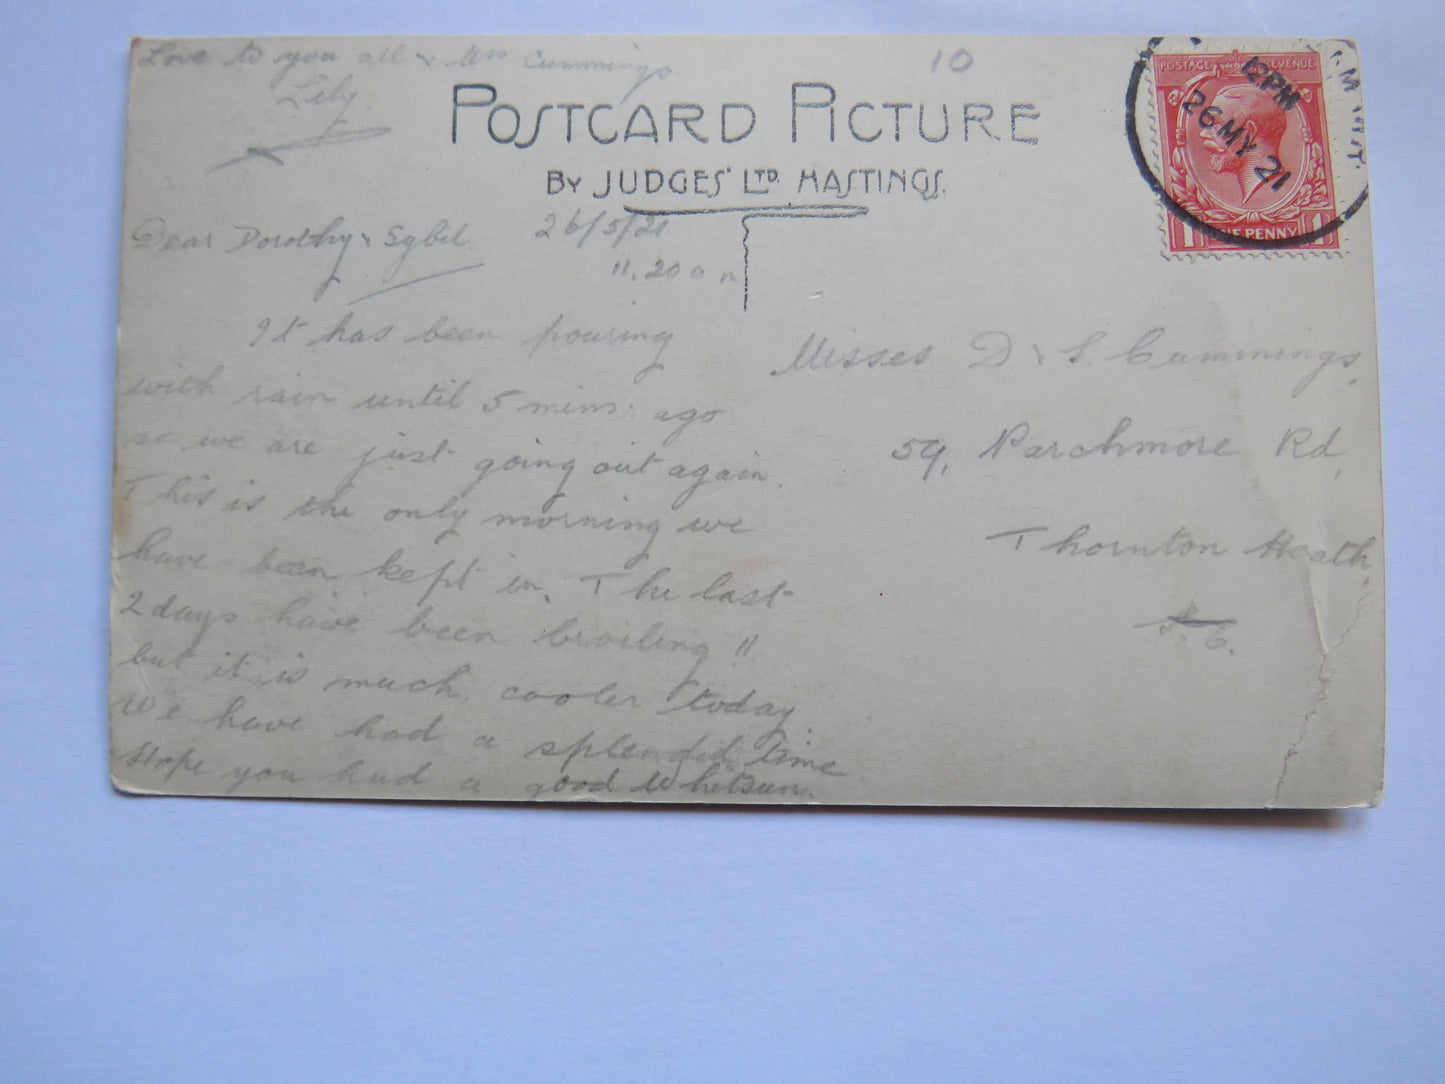 Love to you all & Mrs Cummings.
Lily
10
POSTCARD PICTURE
BY JUDGES' LTD. HASTINGS.
POSTAGE REVENUE
12 PM
26 MY 21
1 ONE PENNY 1
Dear Dorothy & Sybil.
26/5/21
11.20 a m
It has been pouring
with rain until 5 mins: ago
so we are just going out again.
This is the only morning we
have been kept in. The last
2 days have been broiling !!
but it is much cooler today.
We have had a splendid time
Hope you had a good Whitsun.
Misses D & S. Cummings,
59, Parchmore Rd,
Thornton Heath,
S. E.